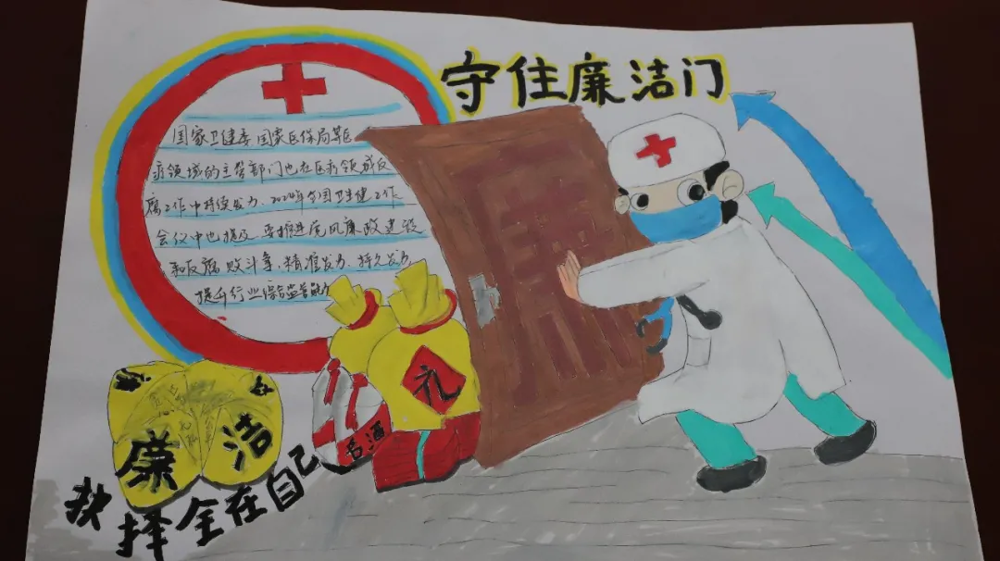 守住廉洁门
国家卫健委国家医保局等医
疗领域的主管部门也在医疗领域反
腐工作中持续发力。2024年全国卫生健工作
会议中也提及,要推进医风廉政建设
和反腐败斗争,精准发力、持久发力
提升行业综合监管能力
礼
名酒
廉洁
抉择全在自己